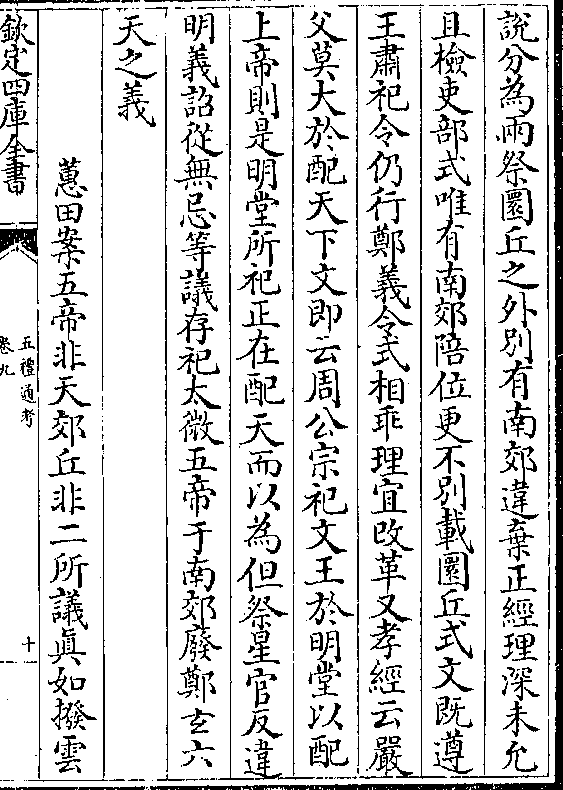 說分為兩祭圜丘之外別有南郊違棄正經理深未允
且檢吏部式唯有南郊陪位更不別載圜丘式文既遵
王肅祀令仍行鄭義令式相乖理宜改革又孝經云嚴
父莫大於配天下文即云周公宗祀文王於明堂以配
上帝則是明堂所祀正在配天而以為但祭星官反違
明義詔從無忌等議存祀太微五帝于南郊廢鄭玄六
天之義
蕙田案五帝非天郊丘非二所議真如撥雲
欽定四庫全書
五禮通考
卷九
十